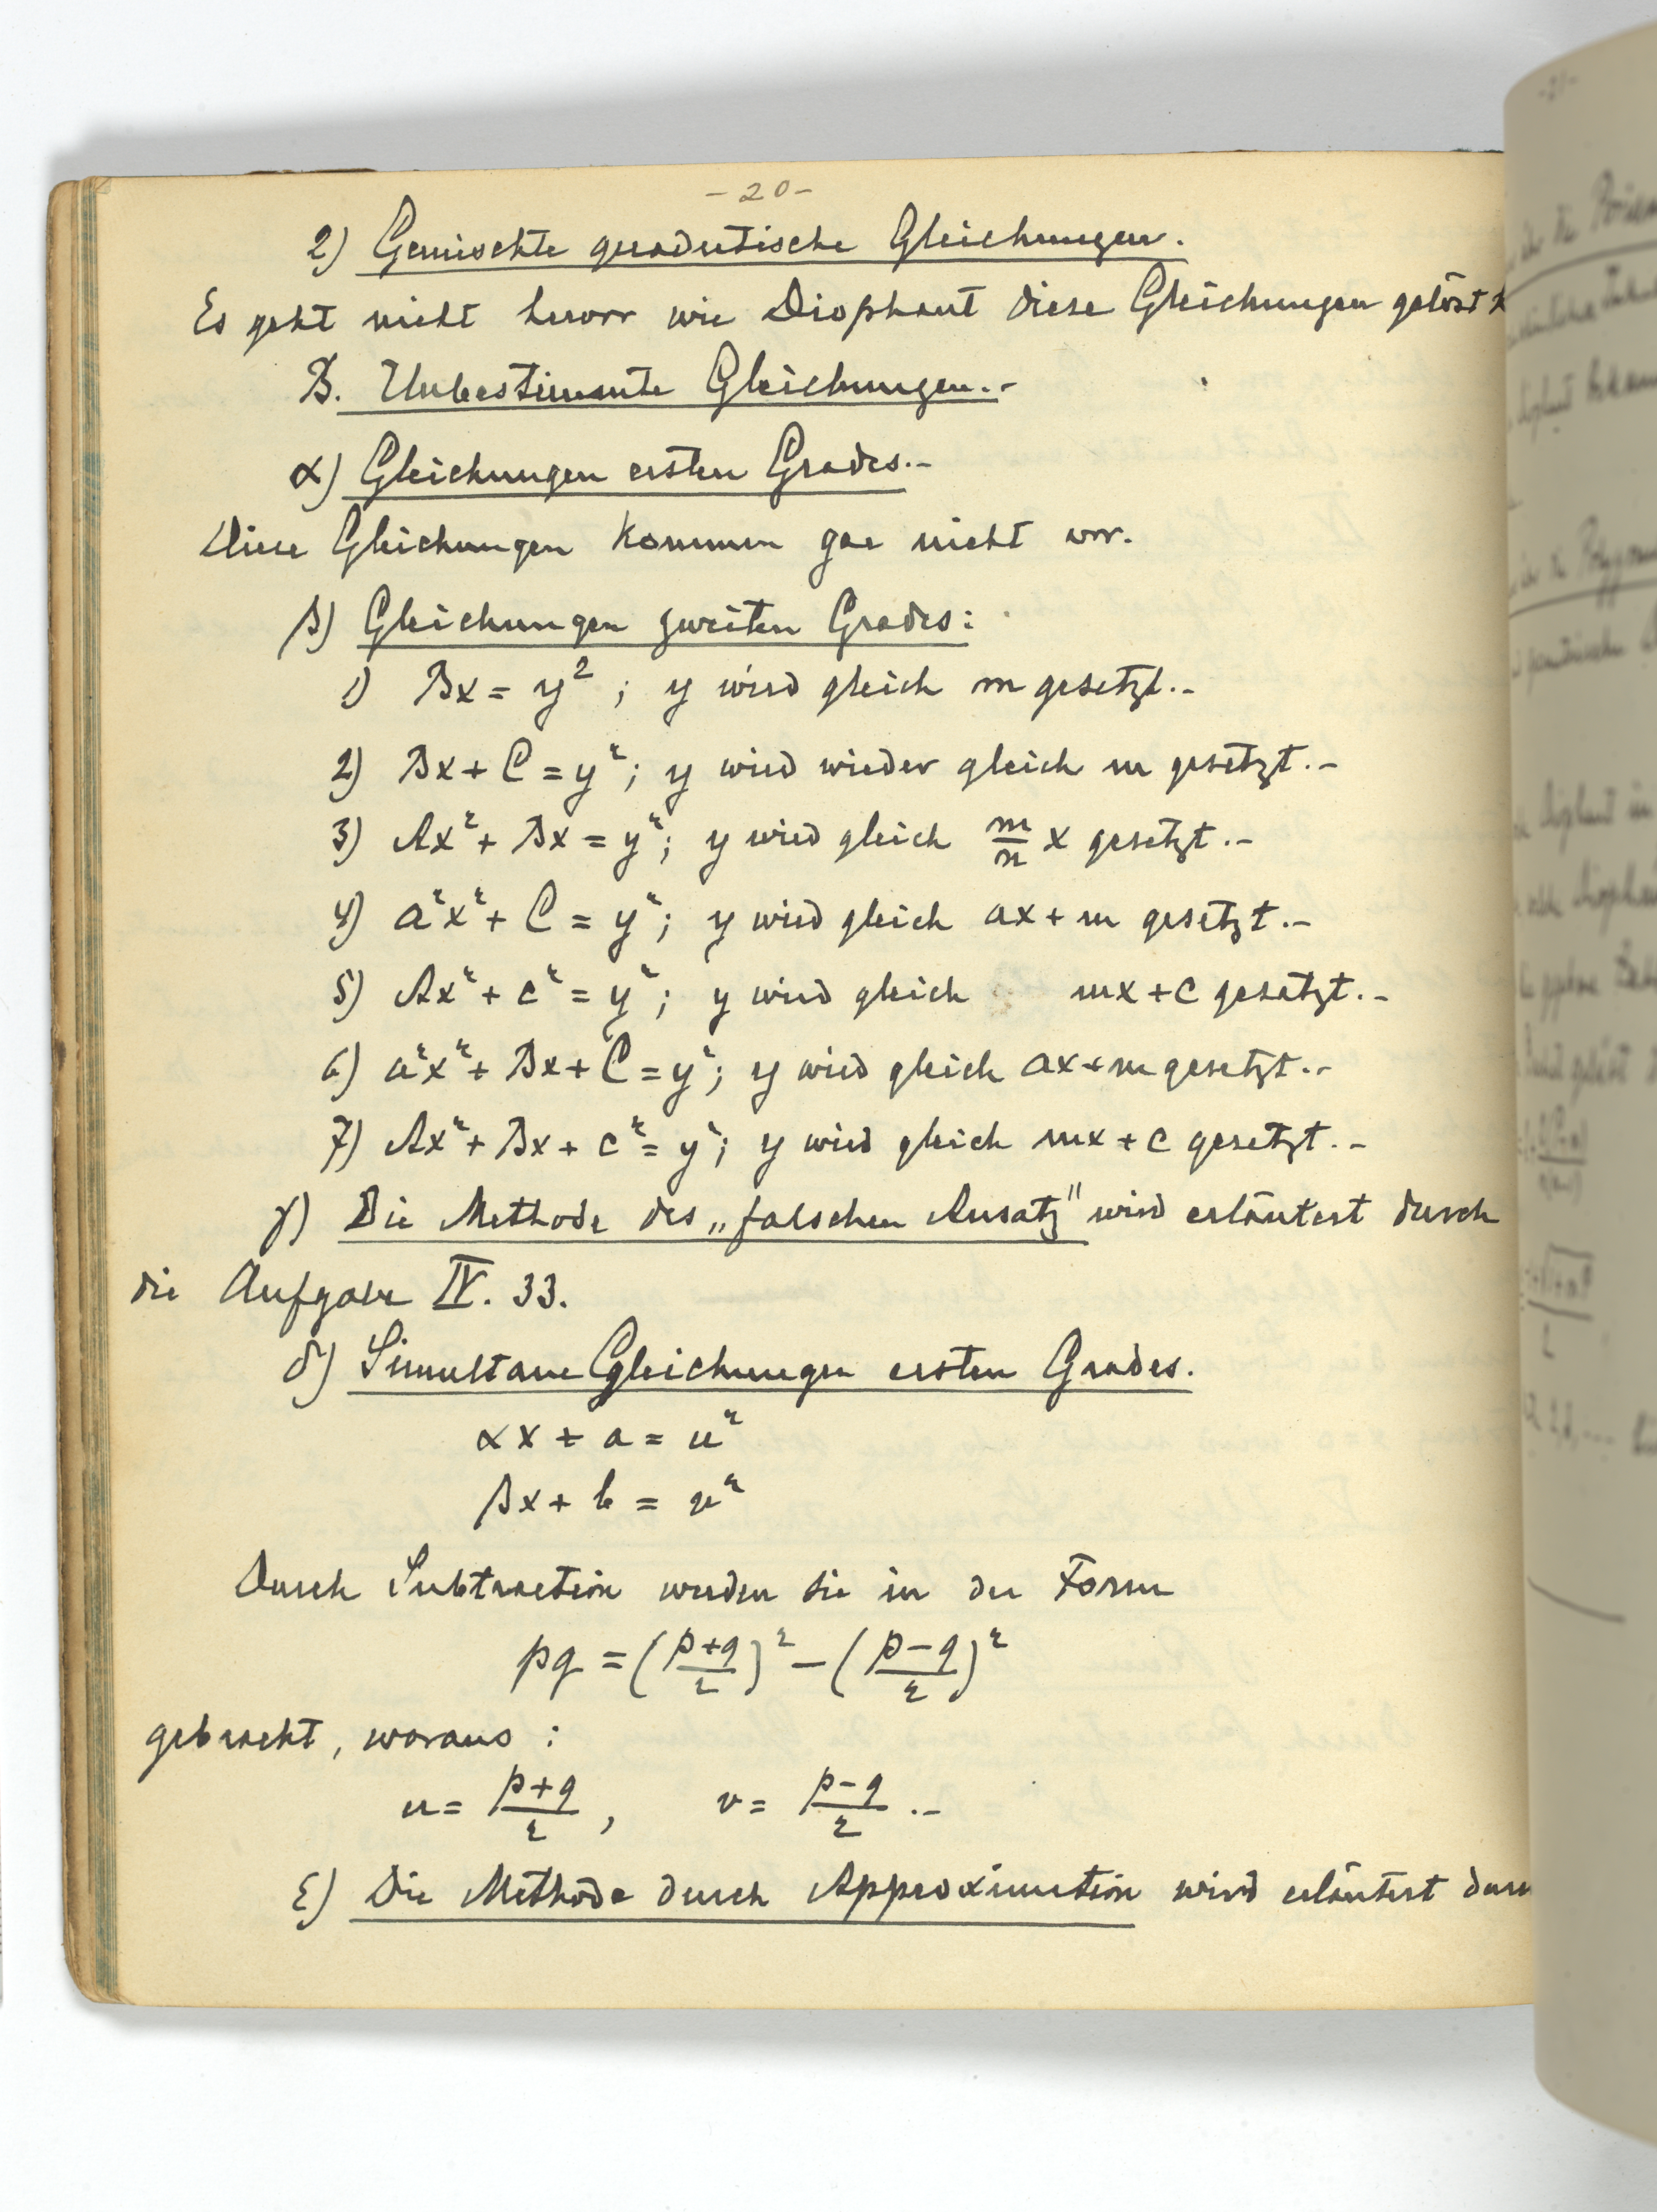 - 20 -
2) Gemischte quadratische Gleichungen.
Es geht nicht hervor wie Diophant diese Gleichungen gelöst
B. Unbestimmte Gleichungen.-
α) Gleichungen ersten Grades.-
Diese Gleichungen kommen gar nicht vor.
β) Gleichungen zweiten Grades:
1) Bx = y²; y wird gleich m gesetzt.-
2) Bx + C = y²; y wird wieder gleich m gesetzt.-
3) Ax² + Bx = y²; y wird gleich m/n x gesetzt.-
4) a²x² + C = y²; y wird gleich ax + m gesetzt.-
5) Ax² + c² = y²; y wird gleich mx + c gesetzt.-
6) a²x² + Bx + C = y²; y wird gleich ax + m gesetzt.-
7) Ax² + Bx + c² = y²; y wird gleich mx + c gesetzt.-
γ) Die Methode des „falschen Ansatz" wird erläutert durch
die Aufgabe IV. 33.
δ) Simultane Gleichungen ersten Grades.
αx + a = u²
βx + b = v²
Durch Subtraction werden sie in der Form
pq = ((p+q)/2)² - ((p-q)/2)²
gebracht, woraus :
u = (p+q)/2, v = (p-q)/2 .-
ε) Die Methode durch Approximation wird erläutert